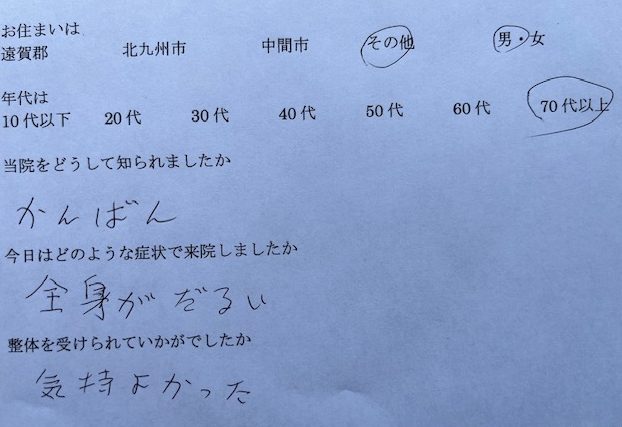 お住まいは
遠賀郡 北九州市 中間市 その他 男・女
年代は
10代以下 20代 30代 40代 50代 60代 70代以上
当院をどうして知られましたか
かんばん
今日はどのような症状で来院しましたか
全身がだるい
整体を受けられていかがでしたか
気持よかった